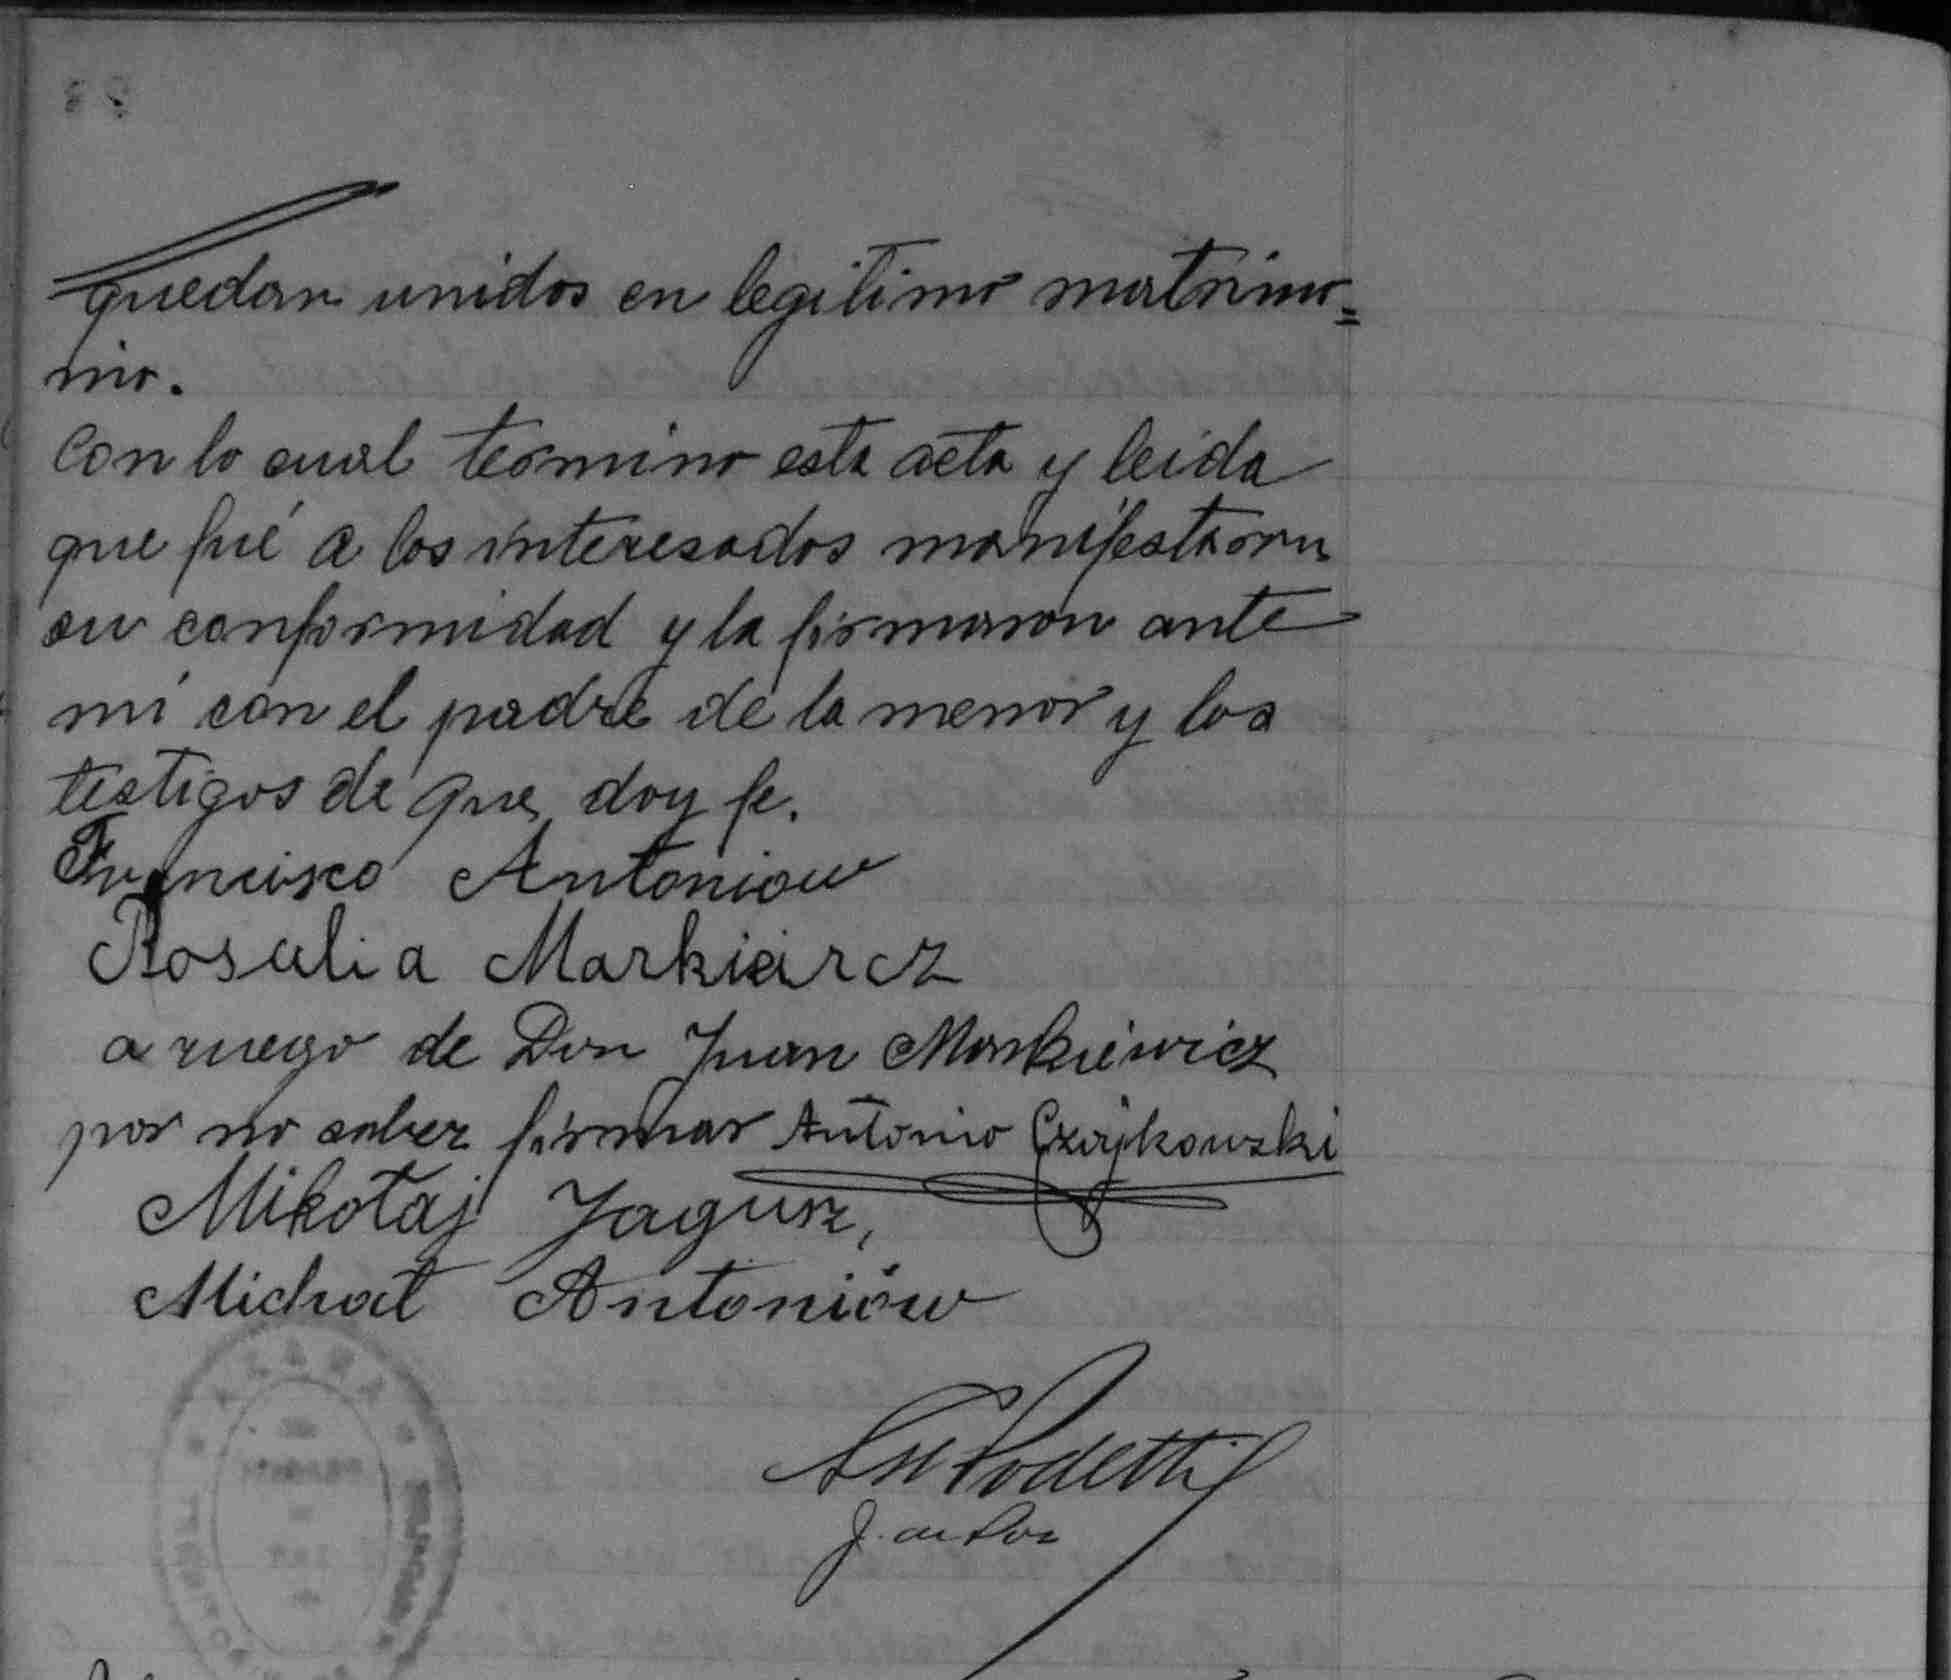 quedan unidos en legitimo matrimo=
nio.
Con lo cual termino esta acta y leida
que fué a los interesados manifestaron
su conformidad y la firmaron ante
mi con el padre de la menor y los
testigos de que doy fe.
Francisco Antoniow
Rosalia Markiewicz
a ruego de Don Juan Markiewicz
por no saber firmar Antonio Czajkowski
Mikołaj Jagusz,
Michał Antoniów
Podetti
J. de Paz
AZARA